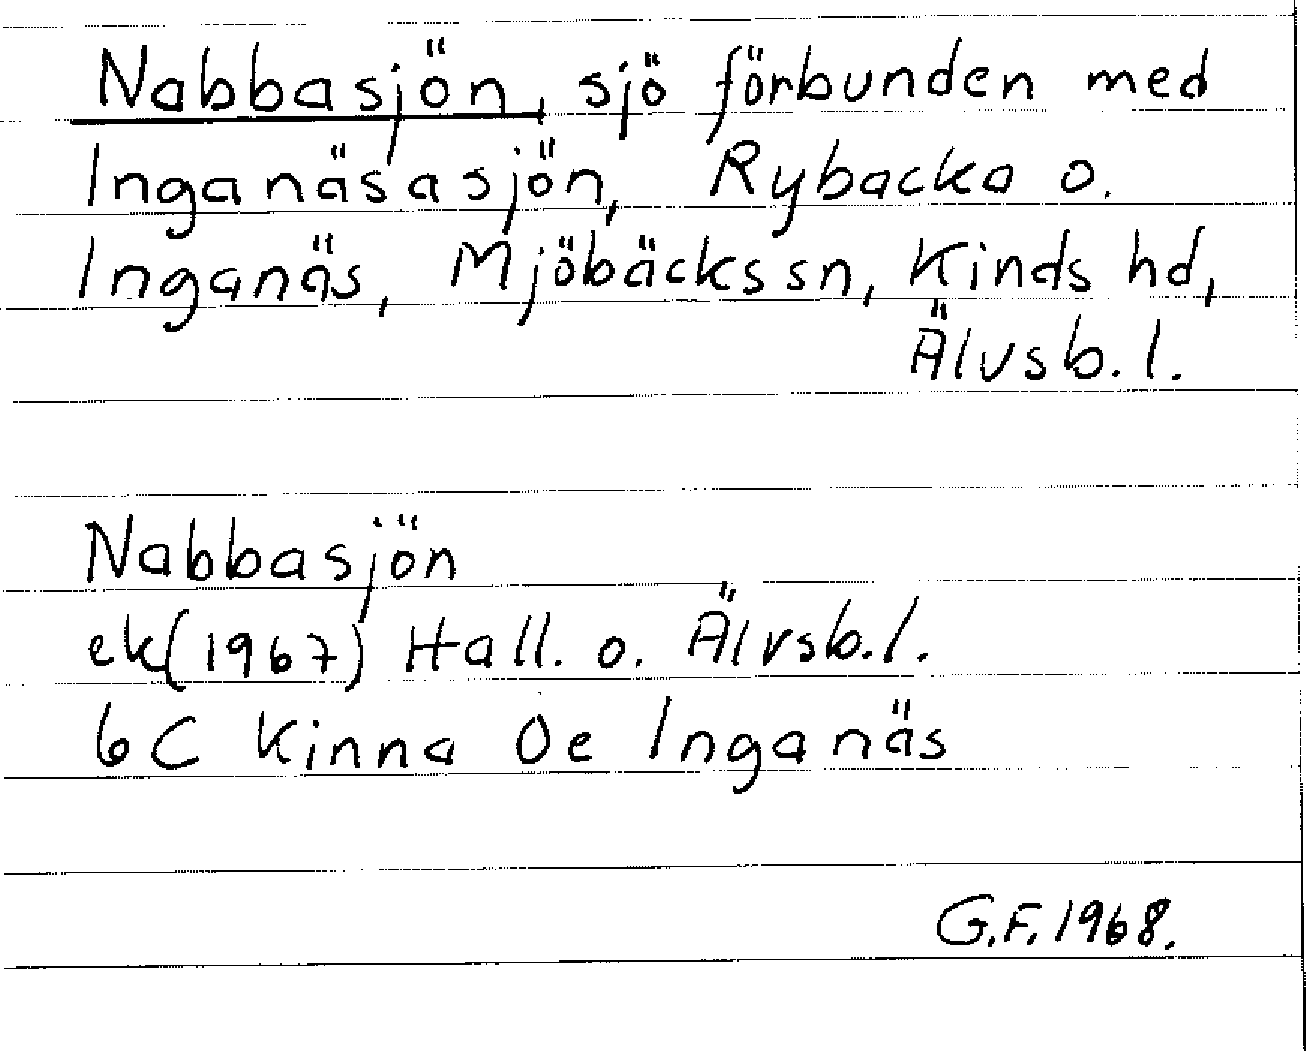 Nabbasjön, sjö förbunden med
Inganäsasjön, Rybacka o.
Inganäs, Mjöbäcks sn, Kinds hd,
Älvsb. l.
Nabbasjön
ek (1967) Hall. o. Älvsb. l.
6C Kinna 0e Inganäs
G.F. 1968.